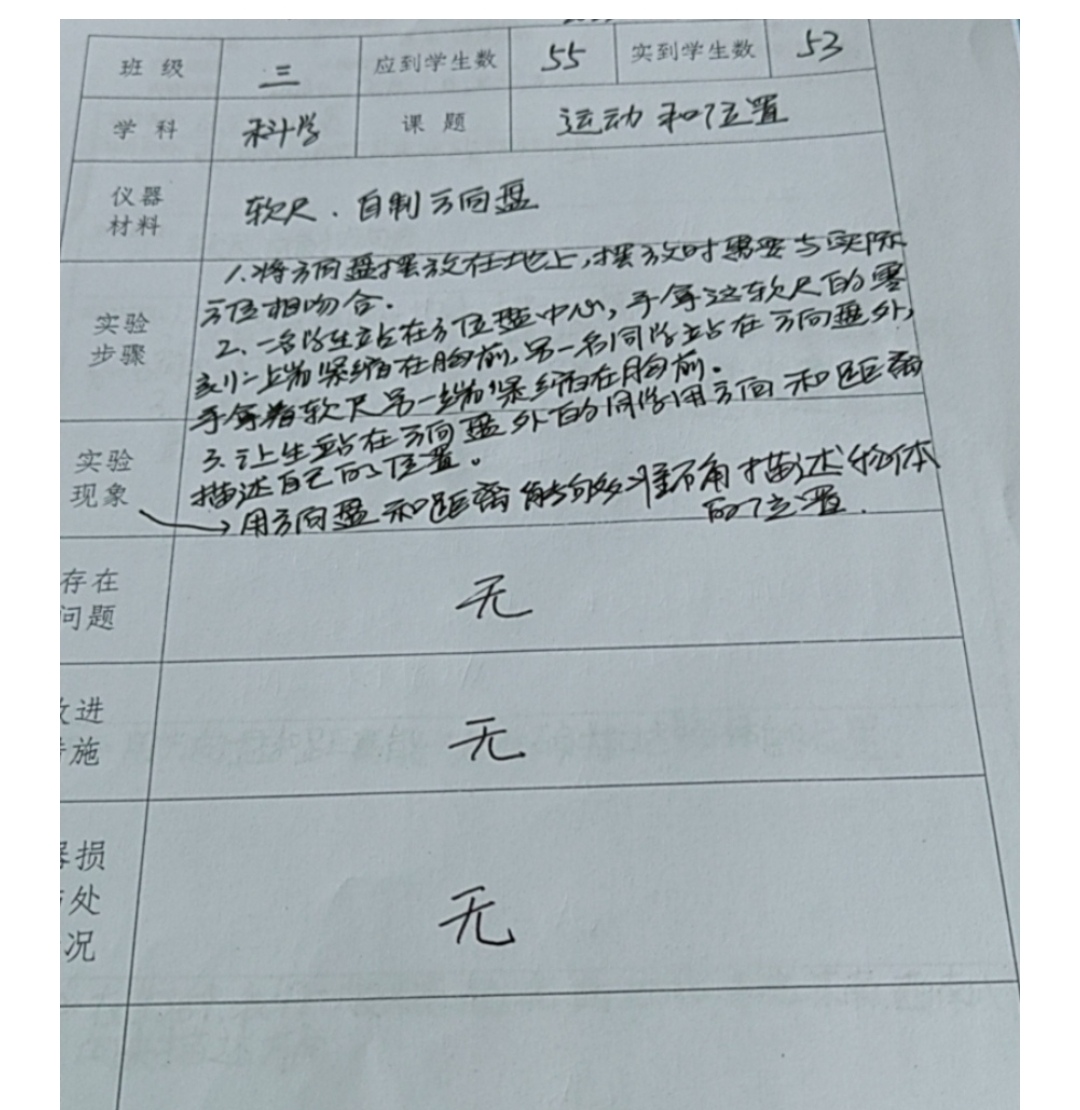 班级 三 应到学生数 55 实到学生数 53
学科 科学 课题 运动和位置
仪器材料 软尺、自制方向盘
实验步骤
1.将方向盘摆放在地上,摆放时需要与实际
方位相吻合.
2、一名学生站在方位盘中心,手拿这软尺的零
刻一端紧缩在胸前,另一名同学站在方向盘外,
手拿着软尺另一端紧缩在胸前.
3.让生站在方向盘外的同学用方向和距离
描述自己的位置。
实验现象
用方向盘和距离能够准确描述物体
的位置.
存在
问题
无
改进
措施
无
损
处
况
无